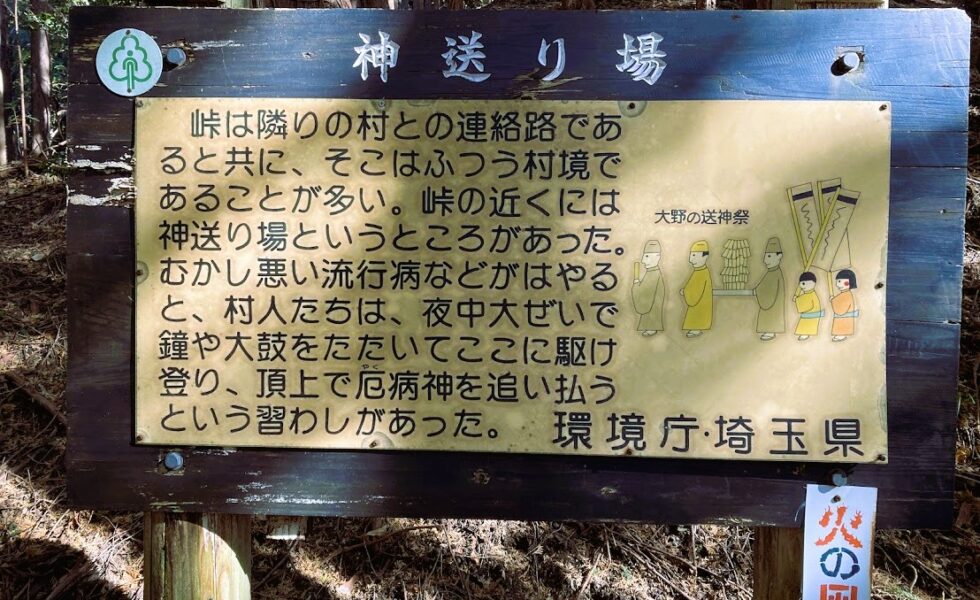 神送り場
峠は隣りの村との連絡路であ
ると共に、そこはふつう村境で
あることが多い。峠の近くには
神送り場というところがあった。
むかし悪い流行病などがはやる
と、村人たちは、夜中大ぜいで
鐘や大鼓をたたいてここに駆け
登り、頂上で厄病神を追い払う
という習わしがあった。
やく
大野の送神祭
環境庁・埼玉県
火の